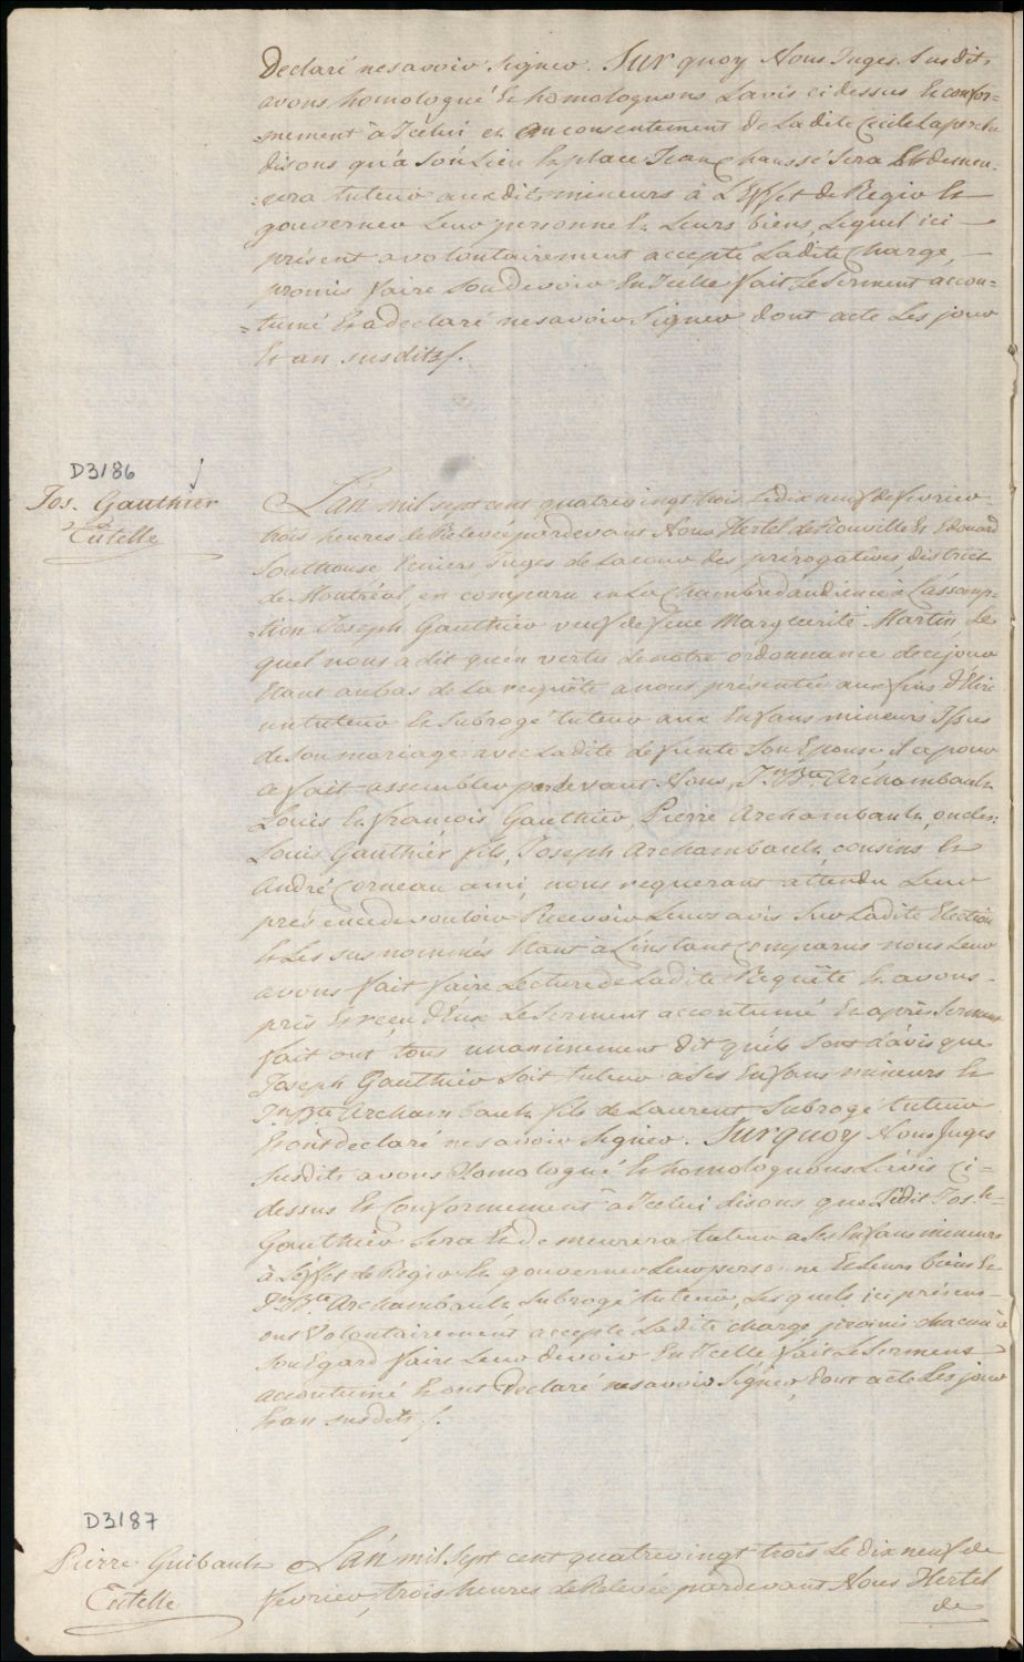 Declaré ne savoir signer. Sur quoy Nous Juges Susdits
avons homologué & homologuons L'avis ci dessus & confor=
=mement à Icelui et au consentement de Ladite Cecile Laporte
disons qu'à son Lieu & place Jean Chaussé sera & demeu-
=rera tuteur auxdits mineurs à L'Effet de Regir &
gouverner Leur personne & Leurs biens, Lequel ici
présent a volontairement accepté Ladite Charge,
promis faire son devoir En Icelle fait Le Serment accou=
=tumé & a declaré ne savoir Signer dont acte Les jour
& an susdits/.
D3186
Jos. Gauthier
Tutelle
L'an mil sept cent quatrevingt trois Le dix neuf de fevrier
trois heures de Relevée pardevant Nous Hertel de Rouville & Edouard
Southouse Ecuiers Juges de La cour des prérogatives district
de Montréal, en comparu en La Chambre d'audience à L'assomp=
=tion Joseph Gauthier veuf de feue Marguerite Martin, Le
quel nous a dit qu'en vertu de notre ordonnance de ce jour
Etant au bas de La requête a nous présentée aux fins d'Elire
un tuteur & Subrogé tuteur aux Enfans mineurs Issus
de Son mariage avec Ladite defunte Son Epouse, il a pour
ce fait assembler pardevant Nous, Jn Bte Archambault
Louis & françois Gauthier, Pierre Archambault, oncles;
Louis Gauthier fils, Joseph Archambault cousins &
André Corneau ami, nous requerant attendu Leur
présence de vouloir Recevoir Leurs avis Sur Ladite Election
& Les sus nommés Etant à L'instant Comparus nous Leur
avons fait faire Lecture de Ladite Requête & avons
pris & reçu d'Eux Le Serment accoutumé & après Serment
fait ont tous unanimement dit qu'ils sont d'avis que
Joseph Gauthier soit tuteur a ses Enfans mineurs &
Jn Bte Archambault fils de Laurent Subrogé tuteur
& ont declaré ne savoir Signer. Sur quoy Nous Juges
Susdits avons Homologué & homologuons L'avis Ci=
dessus & Conformement à Icelui disons que Ledit Josh
Gauthier sera & demeurera tuteur a ses Enfans mineurs
à L'Effet de Regir & gouverner Leur personne & Leurs biens &
Jn Bte Archambault Subrogé tuteur, Lesquels ici présens
ont Volontairement accepté Ladite charge promis chacun à
Son Egard faire Leur devoir En Icelle fait Le Serment
accoutumé & ont Declaré ne savoir Signer, Dont acte Les jour
& an susdits/.
D3187
Pierre Guibault
Tutelle
L'an mil Sept cent quatrevingt trois Le dix neuf de
fevrier, trois heures de Relevée pardevant Nous Hertel
de